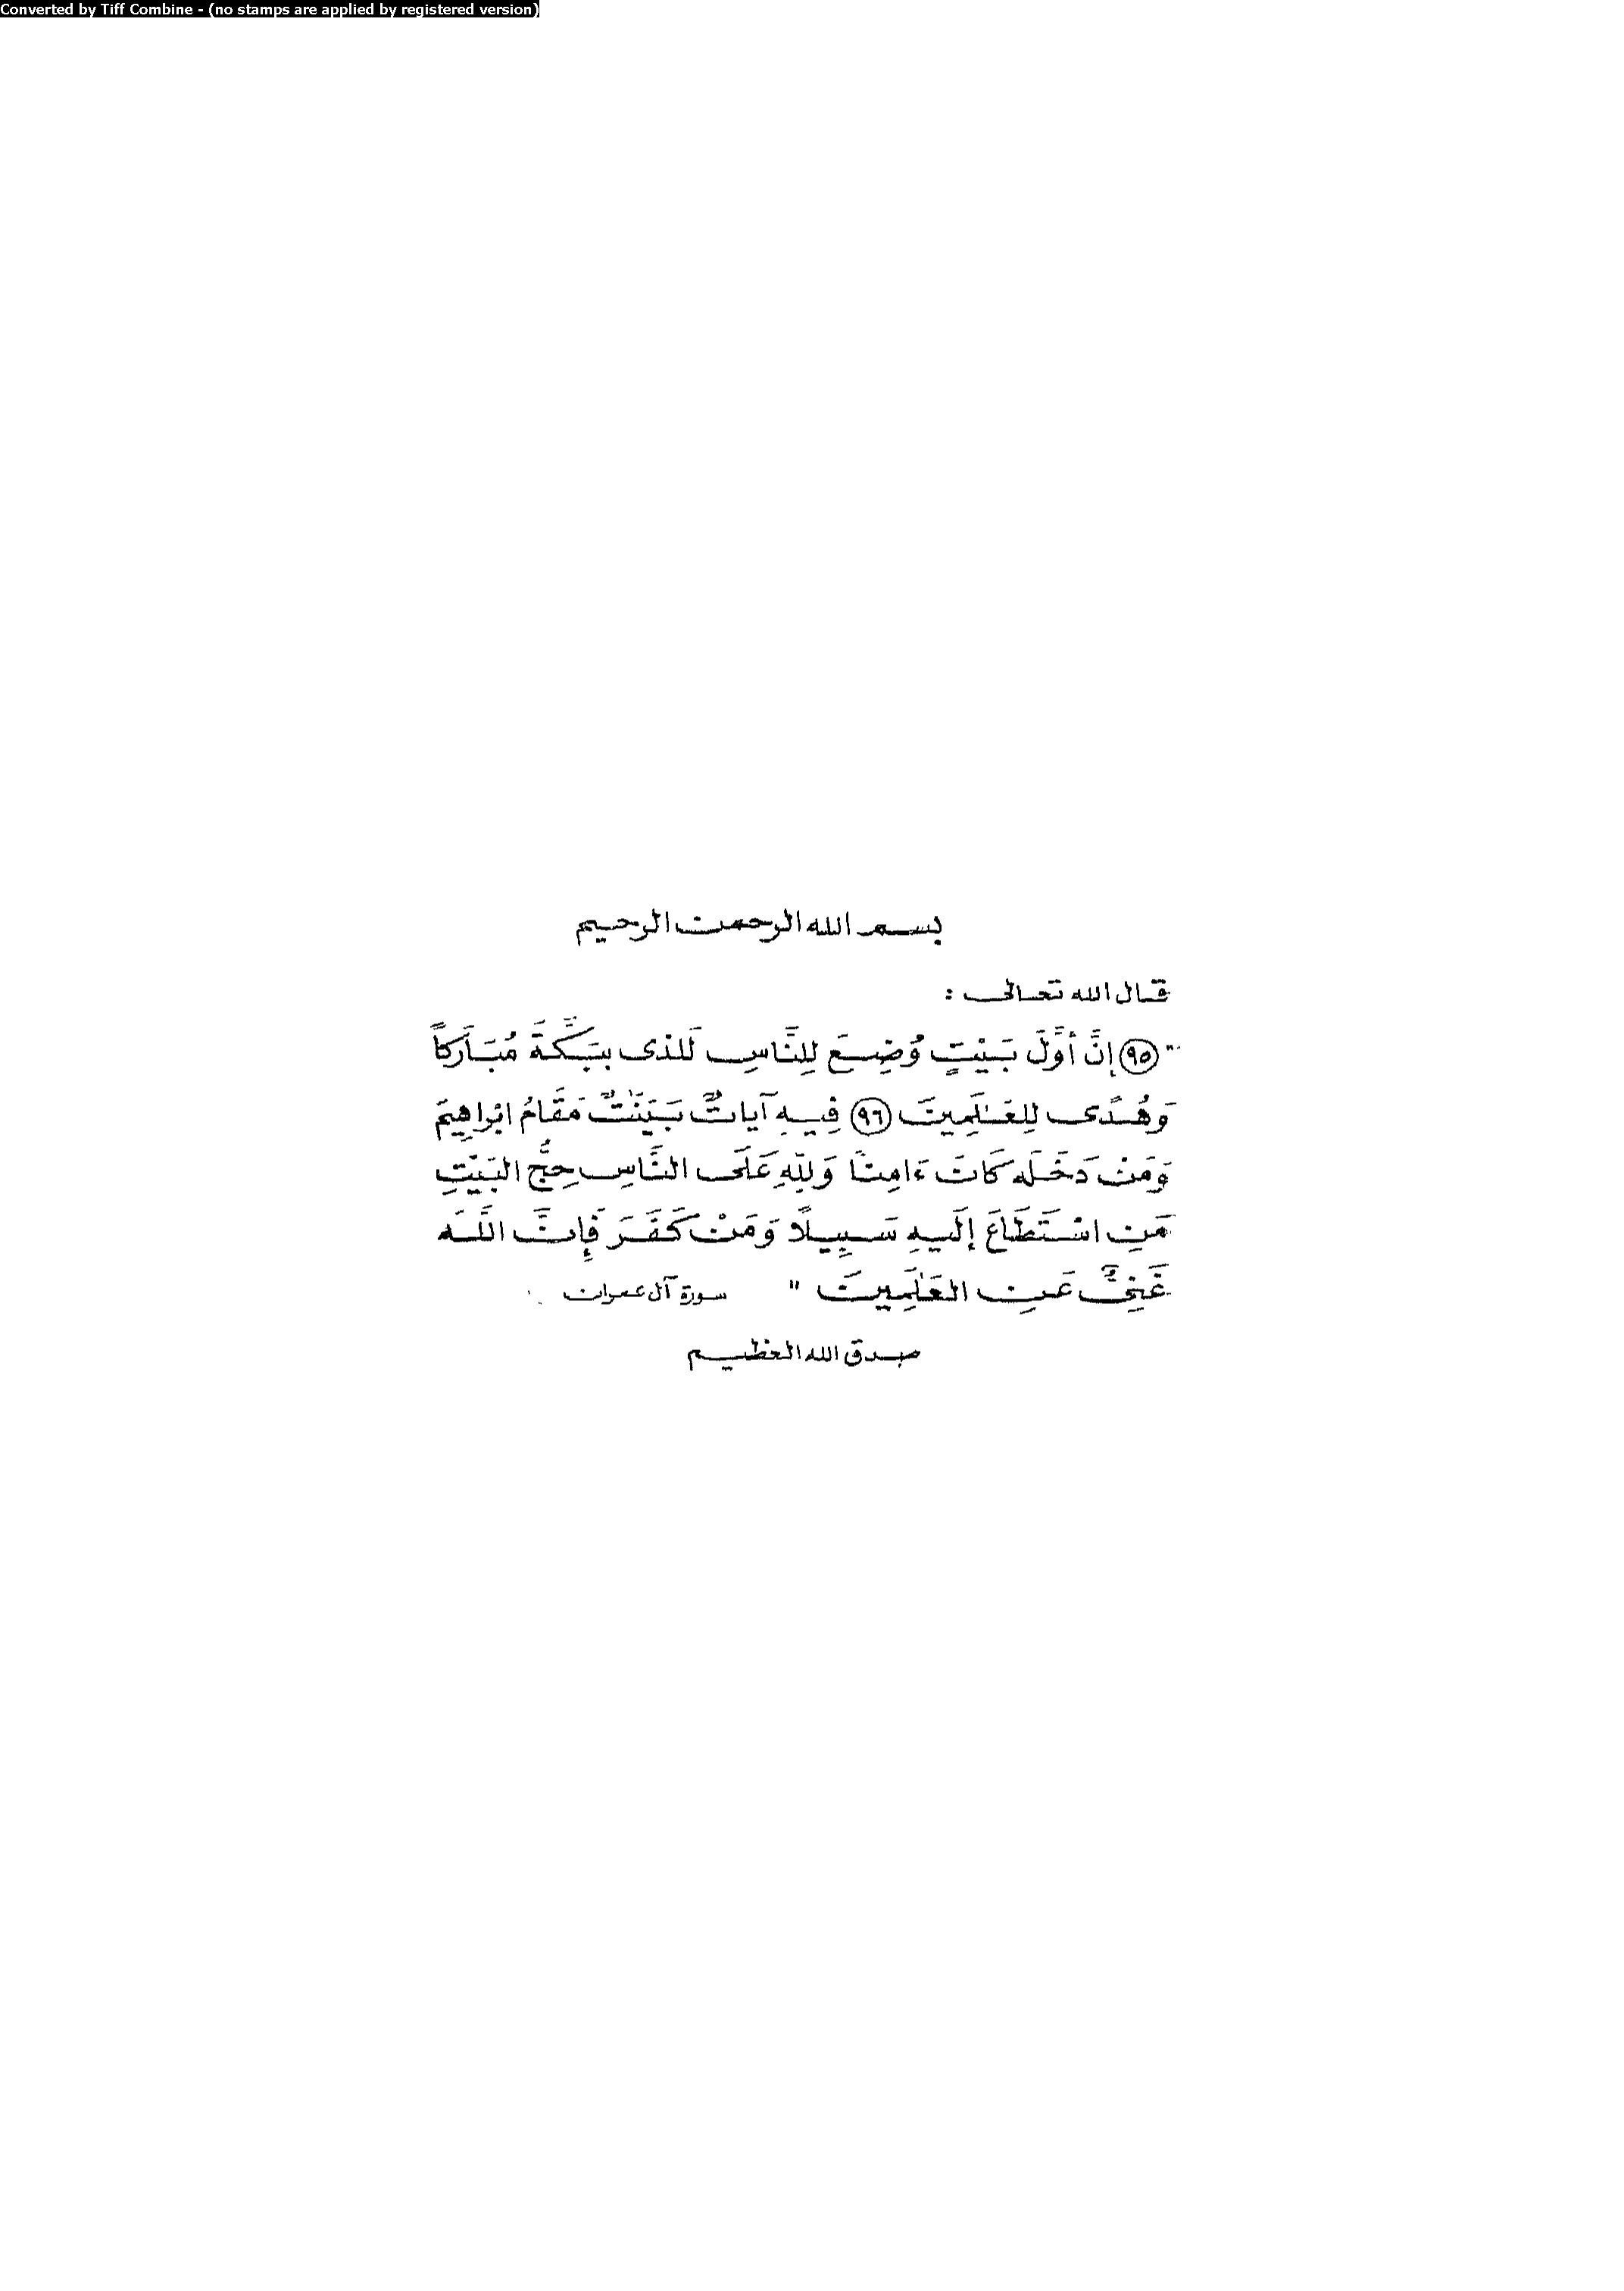 Converted by Tiff Combine - (no stamps are applied by registered version)
بسم الله الرحمن الرحيم
قال الله تعالى :
" (٩٥) إِنَّ أَوَّلَ بَيْتٍ وُضِعَ لِلنَّاسِ لَلذى ببَكَّةَ مُبَارَكاً
وَهُدًى لِلعَـٰلَمِينَ (٩٦) فِيهِ آيَاتٌ بَيِّنَـٰتٌ مَقَامُ ابْراهِيمَ
وَمَنْ دَخَلَه كَانَ ءَامِنًا وَلِلّهِ عَلَى النَّاسِ حِجُّ البَيْتِ
مَنِ اسْتَطَاعَ إِلَيهِ سَبِيلًا وَمَنْ كَفَرَ فَإِنَّ اللَّهَ
غَنِىٌّ عَنِ العَـٰلَمِينَ " سورة آل عمران
صدق الله العظيم